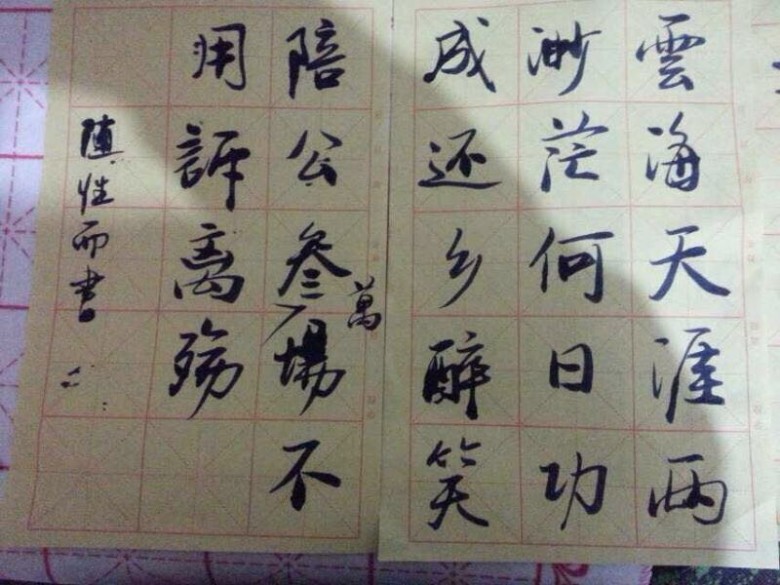 雲海天涯兩
渺茫何日功
成还乡醉笑
陪公叁萬場不
用訴离殇
随性而書